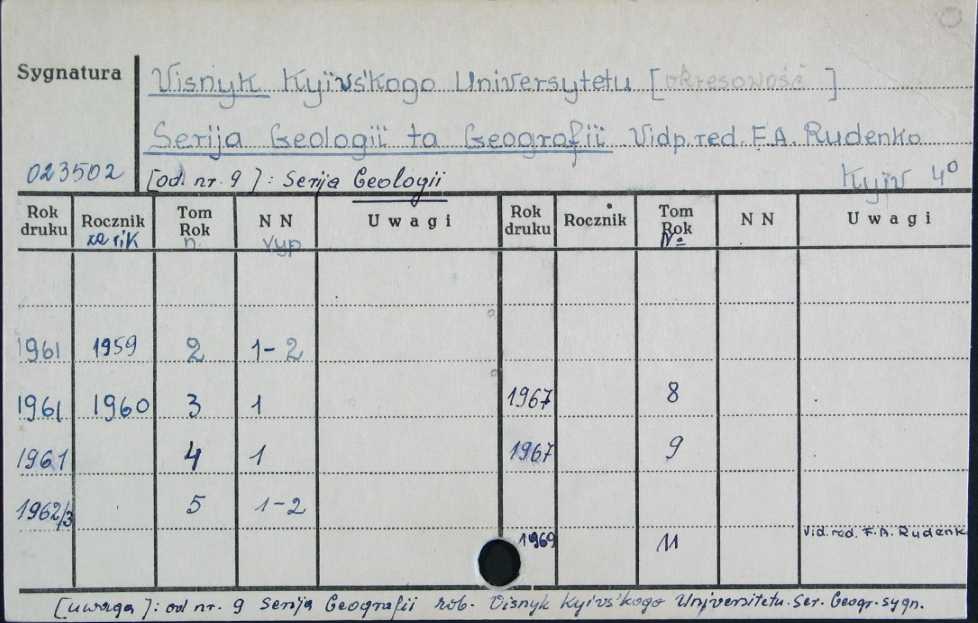 Sygnatura
Visnyk Kyïvs'kogo Universytetu [okresowość]
Serija Geologiï ta Geografiï. Vidp. red. F.A. Rudenko
023502 [od nr. 9]: Serija Geologii Kyjiv 4°
Rok druku Rocznik Tom Rok N N Uwagi Rok druku Rocznik Tom Rok N N Uwagi
za rik n. vyp №
1961 1959 2 1-2
1961 1960 3 1 1967 8
1961 4 1 1967 9
1962/3 5 1-2
1969 11 Vid. red. F.A. Rudenk
[uwaga]: od nr. 9 Serija Geografii rob. Visnyk Kyivs'kogo Universitetu. Ser. Geogr. sygn.